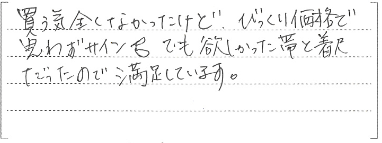 買う気全くなかったけど、びっくり価格で
思わずサイン💦でも欲しかった帯と着尺
だったので満足しています。